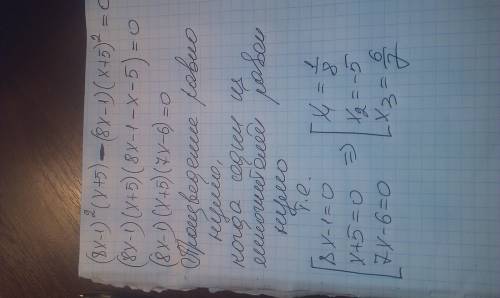 (8x-1)²(x+5)-(8x-1)(x+5)²=0
(8x-1)(x+5)(8x-1-x-5)=0
(8x-1)(x+5)(7x-6)=0
Произведение равно
нулю,
когда один из
множителей равен
нулю
т.е.
[8x-1=0 [x₁=1/8
x+5=0 => x₂=-5
7x-6=0 x₃=6/7